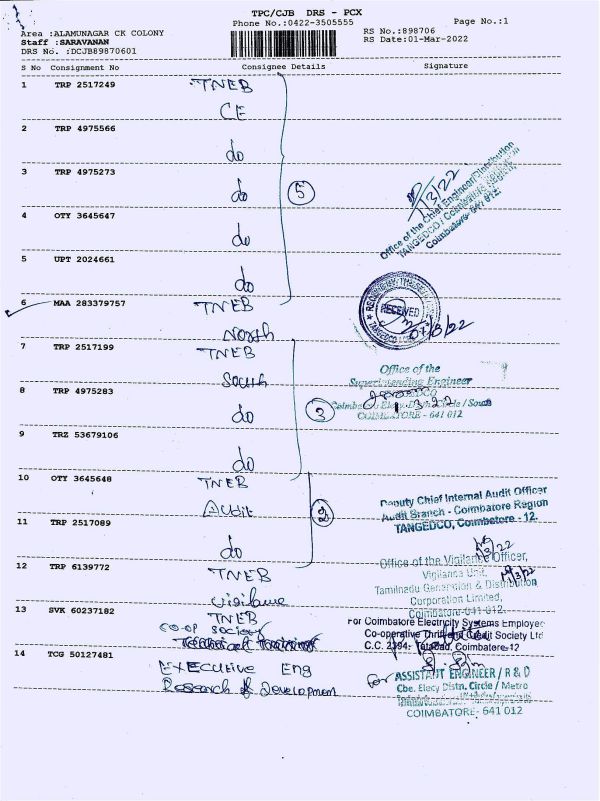 TPC/CJB DRS - PCX
Phone No.:0422-3505555
Page No.:1
Area :ALAMUNAGAR CK COLONY
RS No.:898706
Staff :SARAVANAN
RS Date:01-Mar-2022
DRS No. :DCJB89870601
S No Consignment No Consignee Details Signature
1 TRP 2517249 TNEB
CE
2 TRP 4975566
do
3 TRP 4975273
do
5
1/3/22
Office of the Chief Engineer/Distribution
TANGEDCO / Coimbatore Region,
Coimbatore- 641 012.
4 OTY 3645647
do
5 UPT 2024661
do
6 MAA 283379757 TNEB
North
RECEIVED
01/3/22
7 TRP 2517199 TNEB
South
Office of the
Superintending Engineer
8 TRP 4975283
do
3
Circle / South
COIMBATORE - 641 012
1.3.22
9 TRZ 53679106
do
10 OTY 3645648 TNEB
Audit
2
Deputy Chief Internal Audit Officer
Audit Branch - Coimbatore Region
TANGEDCO, Coimbatore - 12.
11 TRP 2517089
do
1/3/22
12 TRP 6139772 TNEB
Vigilance
Office of the Vigilance Officer,
Vigilance Unit,
Tamilnadu Generation & Distribution
Corporation Limited,
Coimbatore-641 012.
1/3/22
13 SVK 60237182 TNEB
CO-OP society
For Coimbatore Electricity Systems Employee
Co-operative Thrift and Credit Society Ltd
C.C. 2394. Tatabad, Coimbatore-12
14 TCG 50127481 Executive Eng
Research & Development
for ASSISTANT ENGINEER / R & D
Cbe. Elecy Distn. Circle / Metro
COIMBATORE- 641 012